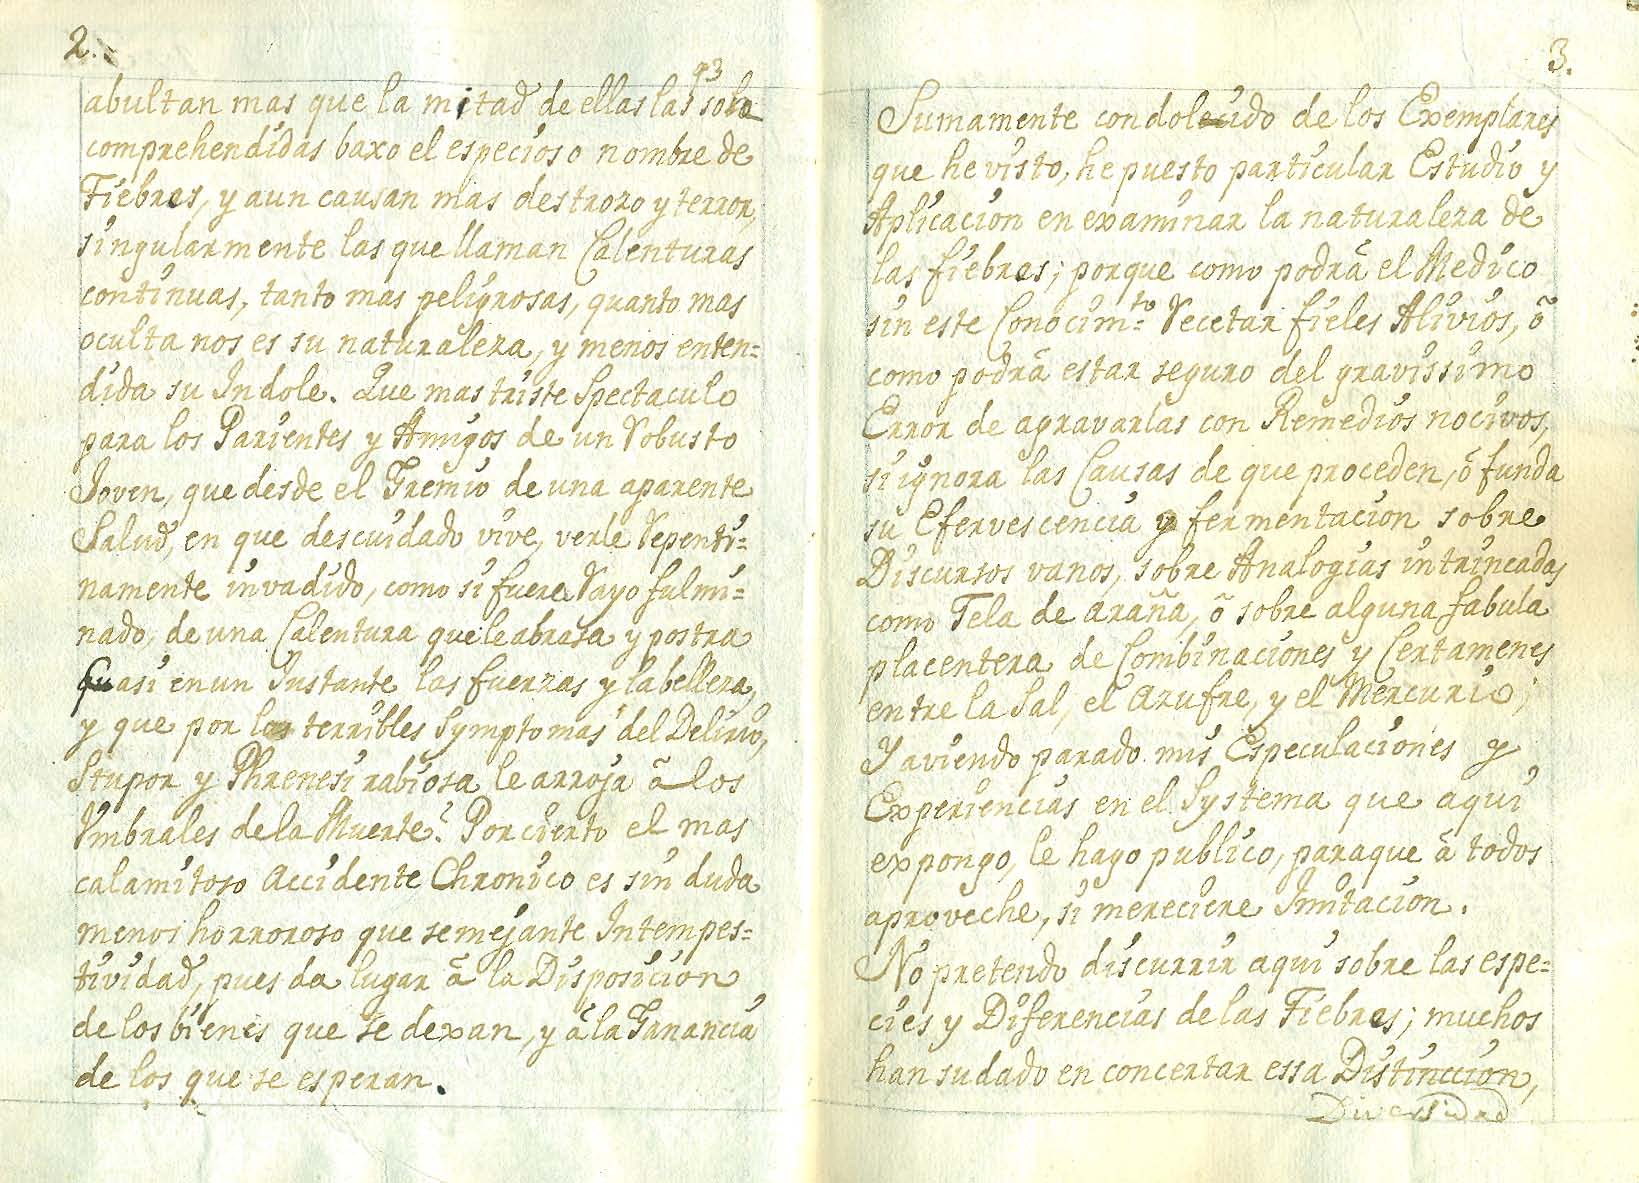 2.
93
abultan mas que la mitad de ellas las solo
comprehendidas baxo el especioso nombre de
Fiebres, y aun causan mas destrozo y terror,
singularmente las que llaman Calenturas
continuas, tanto mas peligrosas, quanto mas
oculta nos es su naturaleza, y menos enten=
dida su Indole. Que mas triste Spectaculo
para los Parientes y Amigos de un Robusto
Joven, que desde el Gremio de una aparente
Salud, en que descuidado vive, verle Repenti=
namente invadido, como si fuere Rayo fulmi=
nado, de una Calentura que le abrasa y postra
quasi en un Instante las fuerzas y la belleza,
y que por los terribles Symptomas del Delirio,
Stupor y Phrenesi rabiosa le arroja â los
Vmbrales de la Muerte? Por cierto el mas
calamitoso Accidente Chronico es sin duda
menos horroroso que semejante Intempes=
tividad, pues da lugar â la Disposicion
de los bienes que se dexan, y â la Ganancia
de los que se esperan.
3.
Sumamente condolecido de los Exemplares
que he visto, he puesto particular Estudio y
Aplicacion en examinar la naturaleza de
las fiebres; porque como podrâ el Medico
sin este Conocim.to Recetar fieles Alivios, ô
como podrâ estar seguro del gravissimo
Error de agravarlas con Remedios nocivos,
si ignora las Causas de que proceden, ô funda
su Efervescencia y fermentacion sobre
Discursos vanos, sobre Analogias intrincadas
como Tela de araña, ô sobre alguna fabula
placentera de Combinaciones y Certamenes
entre la Sal, el Azufre, y el Mercurio;
Y aviendo parado mis Especulaciones y
Experiencias en el Systema que aqui
expongo, le hago publico, paraque â todos
aproveche, si mereciere Imitacion.
No pretendo discurrir aqui sobre las espe=
cies y Diferencias de las Fiebres; muchos
han sudado en concertar essa Distinccion,
Diversidad